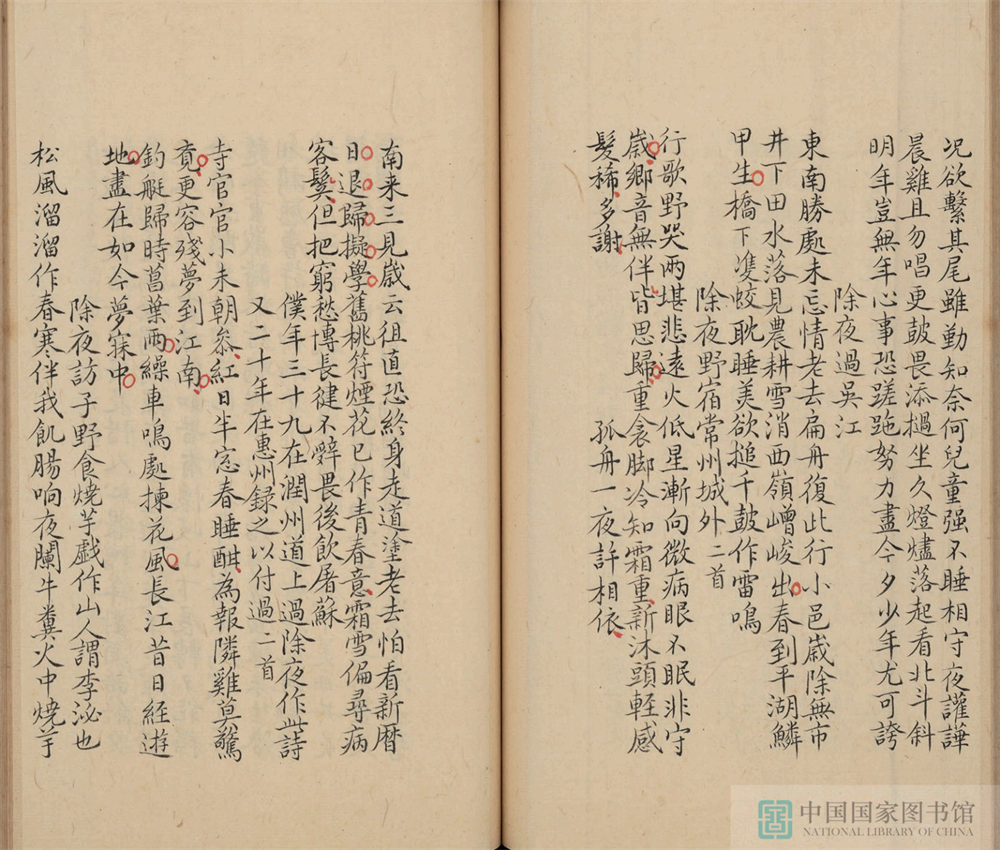 况欲繫其尾雖勤知奈何兒童强不睡相守夜讙譁
晨雞且勿唱更皷畏添撾坐久燈燼落起看北斗斜
明年豈無年心事恐蹉跎努力盡今夕少年尤可誇
除夜過吳江
東南勝處未忘情老去扁舟復此行小邑歲除無市
井下田水落見農耕雪消西嶺嶒峻出春到平湖鱗
甲生橋下雙蛟耽睡美欲搥千皷作雷鳴
除夜野宿常州城外二首
行歌野哭兩堪悲遠火低星漸向微病眼不眠非守
歲鄉音無伴皆思歸重衾脚冷知霜重新沐頭輕感
髮稀多謝　孤舟一夜許相依
南来三見歲云徂直恐終身走道塗老去怕看新曆
日退歸擬學舊桃符煙花已作青春意霜雪偏尋病
客髮但把窮愁博長徤不辭畏後飲屠蘇
僕年三十九在潤州道上過除夜作此詩
又二十年在惠州録之以付過二首
寺官官小未朝叅紅日半窓春睡酣為報隣雞莫驚
覔更容殘夢到江南
釣艇歸時菖葉雨繰車鳴處揀花風長江昔日經逰
地盡在如今夢寐中
除夜訪子野食燒芋戲作山人謂李泌也
松風溜溜作春寒伴我飢腸响夜闌牛糞火中燒芋
中国国家图书馆
NATIONAL LIBRARY OF CHINA